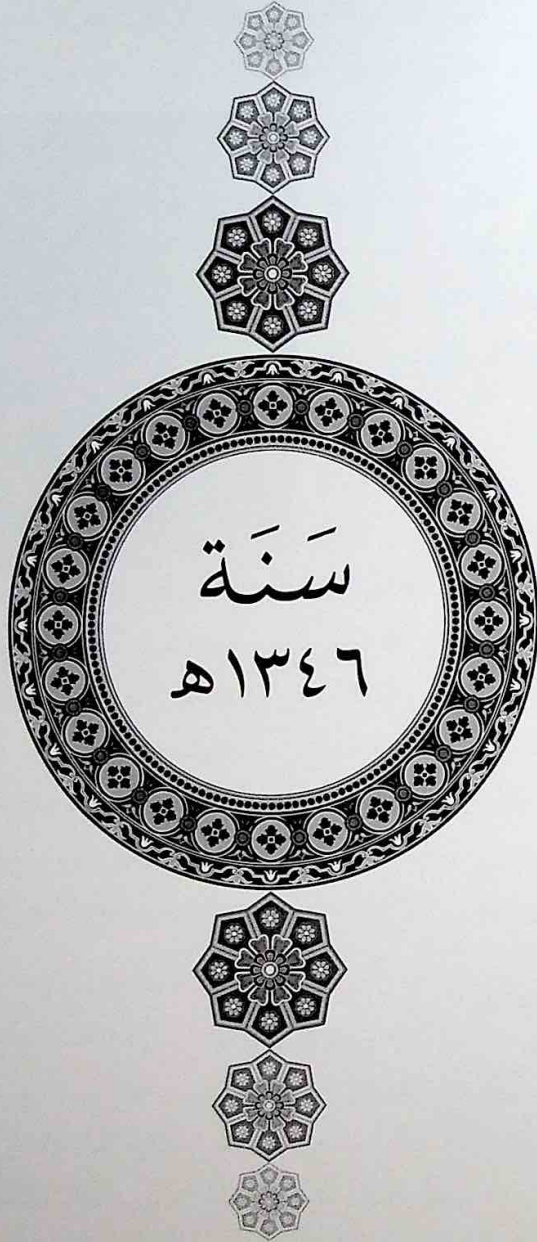 سَنَة
١٣٤٦هـ